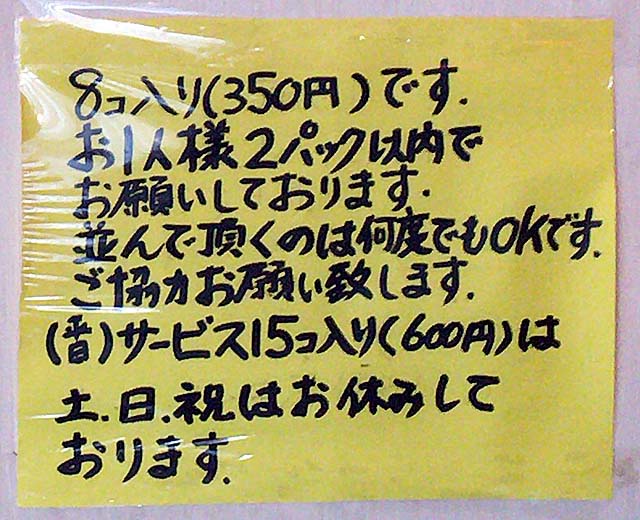 8コ入り(350円)です.
お1人様2パック以内で
お願いしております.
並んで頂くのは何度でもOKです.
ご協力お願い致します.
(平日)サービス15コ入り(600円)は
土.日.祝はお休みして
おります.